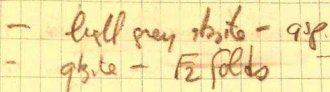 - light grey qtzite - asp.
- qtzite - F2 folds